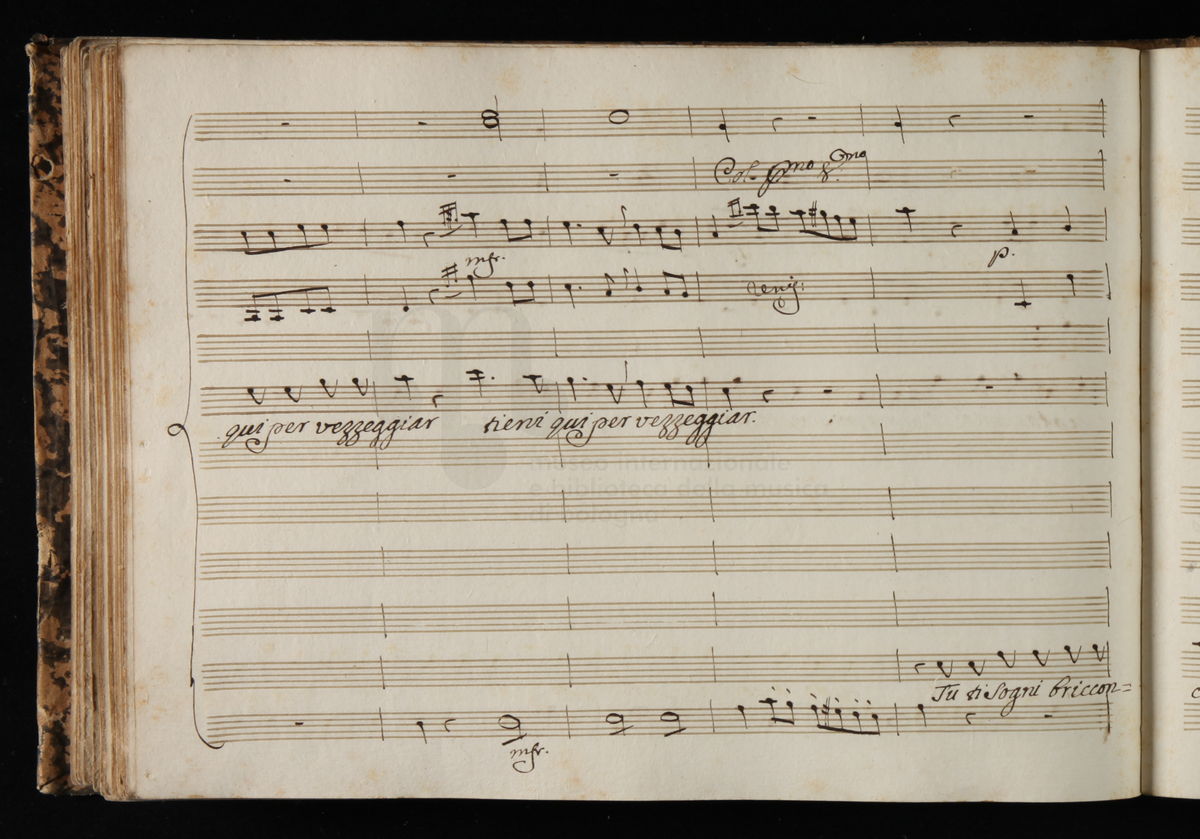 Col p.mo 8.
mfr.
p.
unis:
qui per vezzeggiar tieni qui per vezzeggiar.
museo internazionale
e biblioteca della musica
di bologna
Tu ti sogni briccon=
mfr.